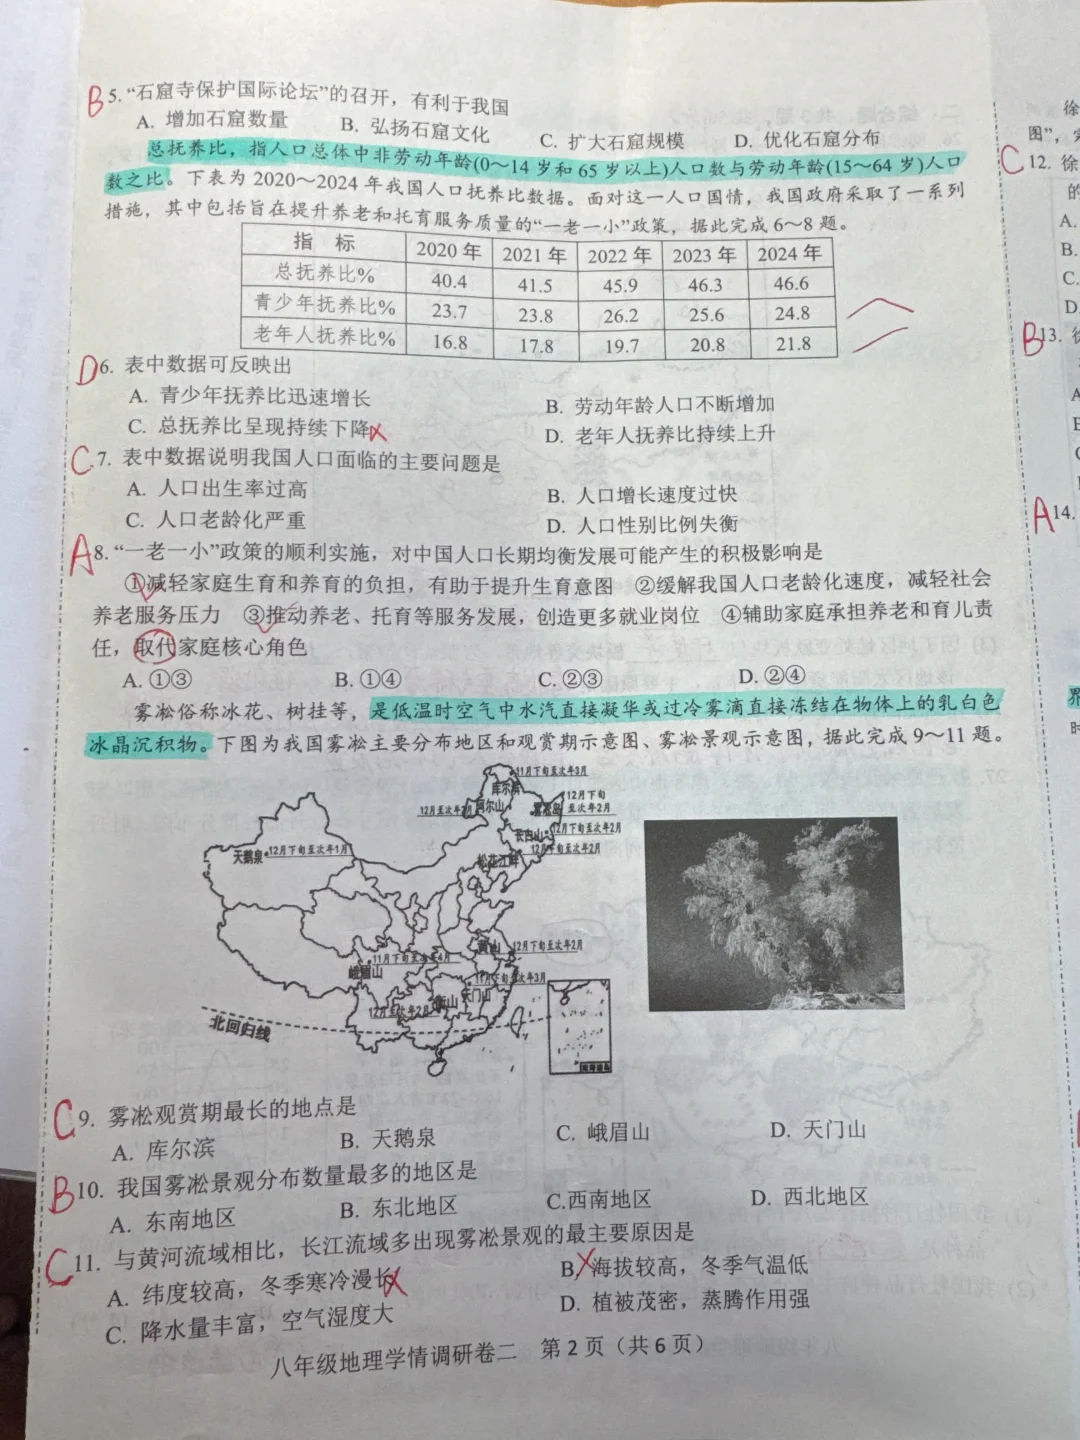 B 5. “石窟寺保护国际论坛”的召开，有利于我国
A. 增加石窟数量 B. 弘扬石窟文化 C. 扩大石窟规模 D. 优化石窟分布
总抚养比，指人口总体中非劳动年龄(0～14岁和65岁以上)人口数与劳动年龄(15～64岁)人口
数之比。下表为2020～2024年我国人口抚养比数据。面对这一人口国情，我国政府采取了一系列
措施，其中包括旨在提升养老和托育服务质量的“一老一小”政策，据此完成6～8题。
指 标 2020年 2021年 2022年 2023年 2024年
总抚养比% 40.4 41.5 45.9 46.3 46.6
青少年抚养比% 23.7 23.8 26.2 25.6 24.8
老年人抚养比% 16.8 17.8 19.7 20.8 21.8
D 6. 表中数据可反映出
A. 青少年抚养比迅速增长 B. 劳动年龄人口不断增加
C. 总抚养比呈现持续下降 D. 老年人抚养比持续上升
C 7. 表中数据说明我国人口面临的主要问题是
A. 人口出生率过高 B. 人口增长速度过快
C. 人口老龄化严重 D. 人口性别比例失衡
A 8. “一老一小”政策的顺利实施，对中国人口长期均衡发展可能产生的积极影响是
①减轻家庭生育和养育的负担，有助于提升生育意图 ②缓解我国人口老龄化速度，减轻社会
养老服务压力 ③推动养老、托育等服务发展，创造更多就业岗位 ④辅助家庭承担养老和育儿责
任，取代家庭核心角色
A. ①③ B. ①④ C. ②③ D. ②④
雾凇俗称冰花、树挂等，是低温时空气中水汽直接凝华或过冷雾滴直接冻结在物体上的乳白色
冰晶沉积物。下图为我国雾凇主要分布地区和观赏期示意图、雾凇景观示意图，据此完成9～11题。
11月下旬至次年3月
库尔滨
12月至次年2月 阿尔山
12月下旬
雾凇岛 至次年2月
长白山 12月下旬至次年2月
12月下旬至次年2月
松花江畔
天鹅泉 12月下旬至次年1月
黄山 12月下旬至次年2月
11月下旬至次年4月
峨眉山
11月下旬至次年3月
天门山
12月至次年2月 衡山
北回归线
C 9. 雾凇观赏期最长的地点是
A. 库尔滨 B. 天鹅泉 C. 峨眉山 D. 天门山
B 10. 我国雾凇景观分布数量最多的地区是
A. 东南地区 B. 东北地区 C.西南地区 D. 西北地区
C 11. 与黄河流域相比，长江流域多出现雾凇景观的最主要原因是
A. 纬度较高，冬季寒冷漫长 B. 海拔较高，冬季气温低
C. 降水量丰富，空气湿度大 D. 植被茂密，蒸腾作用强
八年级地理学情调研卷二 第2页（共6页）
徐
图”，
C 12. 徐
的
A.
B.
C.
D.
B 13.
A 14.
界
时